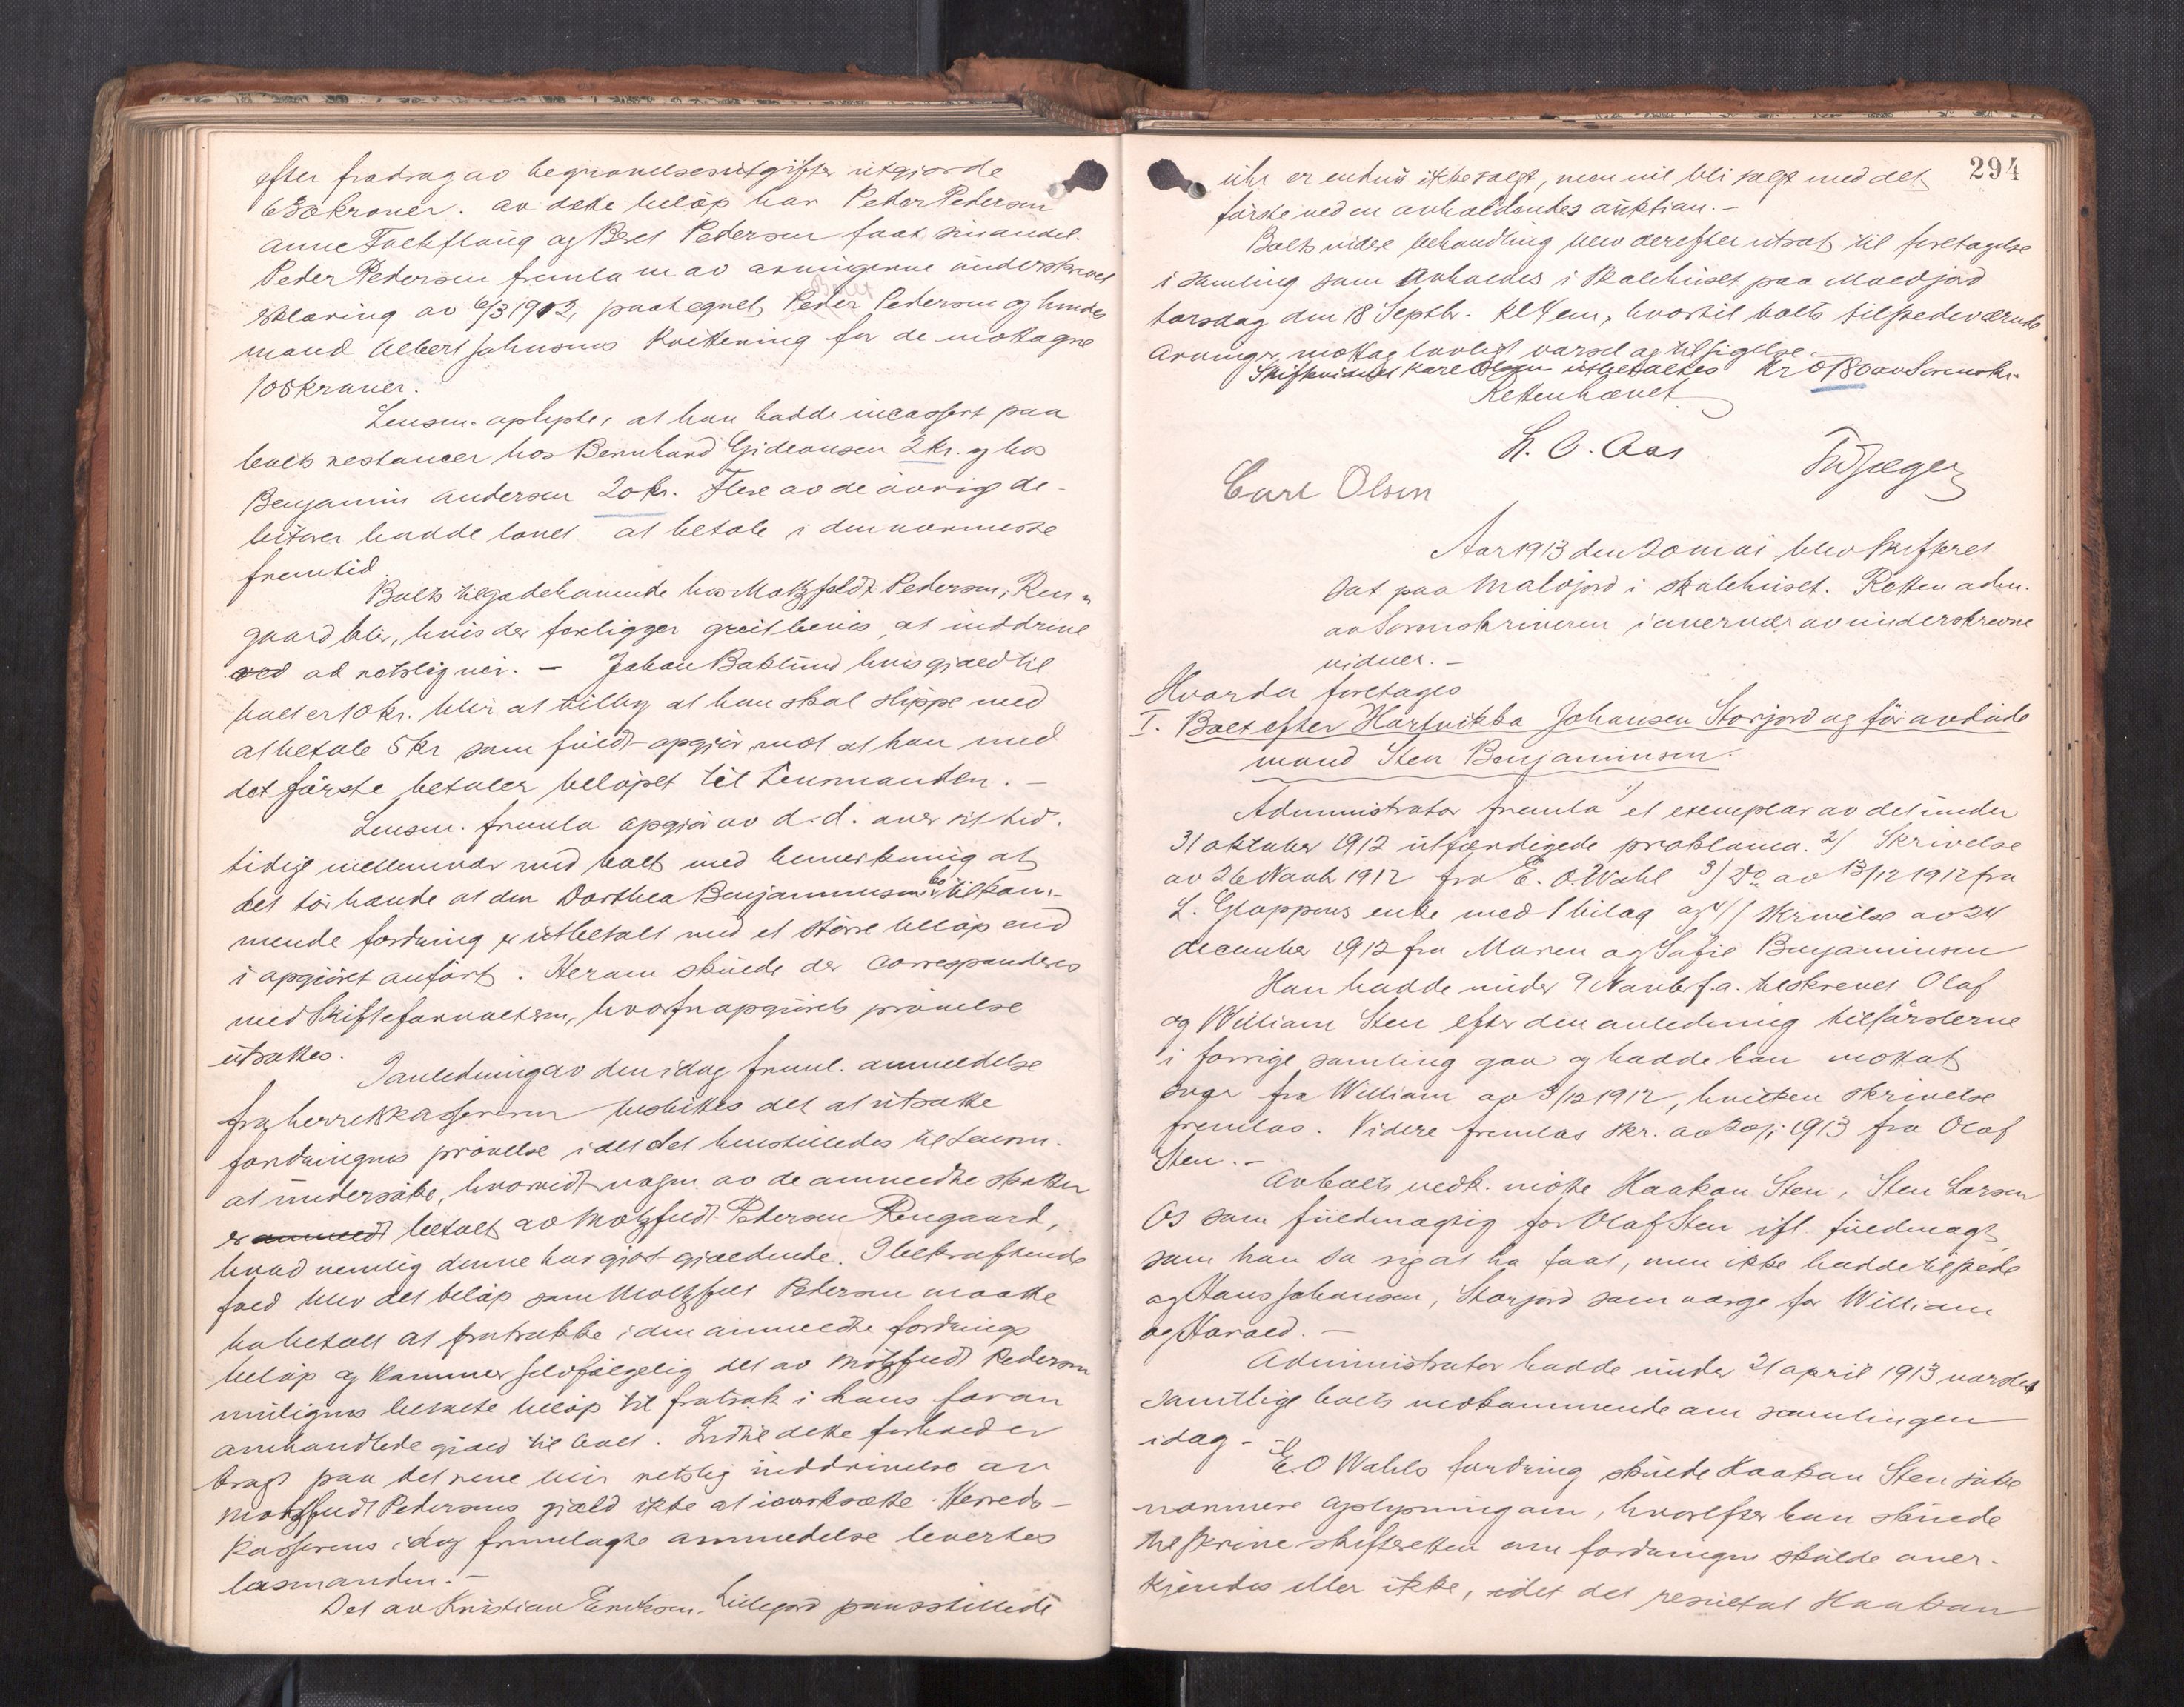 efter fradrag av begravelsesutgifter utgjorde
630 kroner. av dette beløp har Peder Pedersen
Anne Fackflaug og Beret Pedersen faat sin andel.
Peder Pedersen fremla en av arvingerne underskrevet
erklæring av 6/3 1912, paategnet Peder Pedersen og hendes
mand Albert Johnsens kvittering for de mottagne
105 kroner.
Lensm. oplyste, at han hadde incassert paa
boets restancer hos Bernhard Gideonsen 2 kr. og hos
Benjamin Andersen 20 kr. Flere av de øvrige de-
bitorer hadde lovet at betale i den nærmeste
fremtid.
Boets tilgodehavende hos Motzfeldt Pedersen, Ren-
gaard blir, hvis der foreligger greit bevis, at inddrive
ved ad retslig vei. – Johan Baklund hvis gjæld til
boet er 10 kr. blir at tilby at han skal slippe med
at betale 5 kr som fuldt opgjør, mot at han med
det første betaler beløpet til Lensmanden. –
Lensm. fremla opgjør av d.d. over sit tid-
tidige mellemvær med boet med bemerkning at
det tør hænde at den Dorthea Benjaminsens bo tilkom-
mende fordring er utbetalt med et større beløp end
i opgjøret anført. Herom skulde der correspanderes
med Skifteforvalteren, hvorfor opgjørets prøvelse
utsattes.
I anledning av den idag freml. anmeldelse
fra herredskassereren besluttes det at utsætte
fordringens prøvelse idet det henstilledes til Lensm.
at undersøke, hvorvidt nogen av de anmeldte skatter
er anmeldt betalt av Motzfeldt Pedersen Rengaard,
hvad nemlig denne har gjort gjældende. I bekræftende
fald blev det beløp som Motzfeldt Pedersen maatte
ha betalt at fratrække i den anmeldte fordrings
beløp og kommer selvfølgelig det av Motzfeldt Pedersen
muligens betalte beløp til fratræk i hans foran
omhandlede gjæld til boet. Indtil dette forhold er
bragt paa det rene blir retslig inddrivelse av
Motzfeldt Pedersens gjæld ikke at iverksætte. Herreds-
kasserens idag fremlagte anmeldelse levertes
lensmanden. –
Det av Kristian Eriksen Lillejord pansstillede
294
uhr er endnu ikke solgt, men vil bli solgt med det
første ved en avholdendes auktion. –
Boets videre behandling blev derefter utsat til foretagelse
i samling som avholdes i skolehuset paa Maldjord
torsdag den 18 Septbr. kl 4 em, hvortil boets tilstedeværende
arvinger mottog lovligt varsel og tilsigelse.
Skiftevidnet Karl Olsen utbetaltes kr 0,80 av Sorenskr.
Retten hævet
L. O. Aas
FJæger
Carl Olsen
Aar 1913 den 20 mai blev skifteret
sat paa Maldjord i skolehuset. Retten adm.
av Sorenskriveren i overvær av underskrevne
vidner. –
Hvorda foretages
I. Boet efter Hartvikka Johansen Storjord og før avdøde
mand Sten Benjaminsen.
Administrator fremla 1) et exemplar av det under
31 oktober 1912 utfærdigede proklama. 2) Skrivelse
av 26 Novbr 1912 fra E. O. Wahl 3) Do av 13/12 1912 fra
L. Gloppens enke med 1 bilag og 4) skrivelse av 24
december 1912 fra Maren og Sofie Benjaminsen
Han hadde under 9 Novbr f.a. tilskrevet Olaf
og William Sten efter den anledning tilførslerne
i forrige samling gav og hadde han mottat
svar fra William av 3/12 1912, hvilken skrivelse
fremlas. Videre fremlas skr. av 20/1 1913 fra Olaf
Sten. –
Av boets vedk. møtte Haakon Sten, Sten Larsen
Os som fuldmægtig for Olaf Sten ifl. fuldmagt
som han sa sig at ha faat, men ikke hadde tilstede
og Hans Johansen, Storjord som værge for William
og Harald. –
Administrator hadde under 21 april 1913 varslet
samtlige boets vedkommende om samlingen
idag. –
E. O Wahls fordring skulde Haakon Sten søke
nærmere oplysning om, hvorefter han skulde
tilskrive skifteretten om fordringen skulde aner-
kjendes eller ikke, idet det resultat Haakon